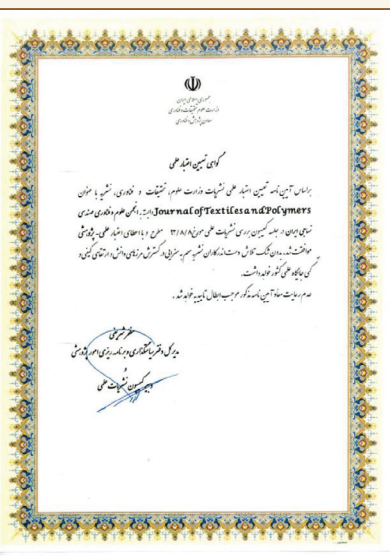 جمهوری اسلامی ایران
وزارت علوم، تحقیقات و فناوری
معاون پژوهش و فناوری
گواهی تعیین اعتبار علمی
براساس آیین نامه تعیین اعتبار علمی نشریات وزارت علوم، تحقیقات و فناوری، نشریه با عنوان
Journal of Textiles and Polymers وابسته به انجمن علوم و فناوری مهندسی
نساجی ایران در جلسه کمیسیون بررسی نشریات علمی مورخ ۹۳/۸/۱۸ مطرح و با اعطای اعتبار علمی-پژوهشی
موافقت شد. بدون شک تلاش دست اندرکاران نشریه سهم بسزایی در گسترش مرزهای دانش و ارتقای کیفی و
کمی جایگاه علمی کشور خواهد داشت.
عدم رعایت مفاد آیین نامه مذکور موجب ابطال تاییدیه خواهد شد.
مدیر کل دفتر سیاستگذاری و برنامه ریزی امور پژوهشی
و
دبیر کمیسیون نشریات علمی